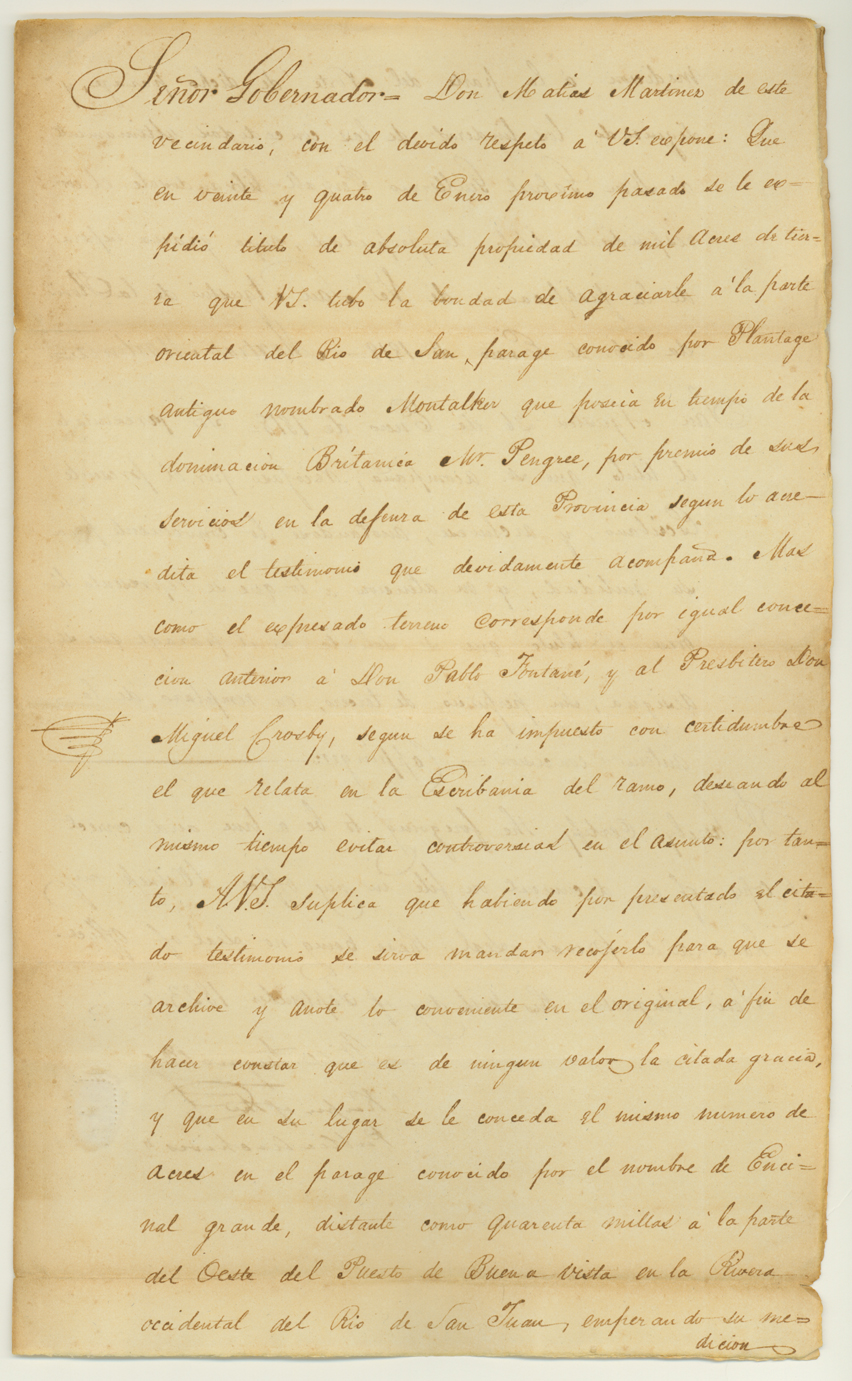 Señor Gobernador= Don Matias Martinez de este
vecindario, con el devido respeto a' VS. expone: Que
en veinte y quatro de Enero proximo pasado se le ex=
pidió titulo de absoluta propiedad de mil acres de tier=
ra que VS. tubo la bondad de agraciarle a' la parte
oriental del Rio de San, parage conocido por Plantage
antiguo nombrado Montalker que poseia en tiempo de la
dominacion Britanica Mr. Pengree, por premio de sus
servicios en la defensa de esta Provincia segun lo acre-
dita el testimonio que devidamente acompaña. Mas
como el expresado terreno corresponde por igual conce=
cion anterior a' Don Pablo Fontané, y al Presbitero Don
Miguel Crosby, segun se ha impuesto con certidumbre
el que relata en la Escribania del ramo, deseando al
mismo tiempo evitar controversias en el asunto: por tan=
to, A.V.S. suplica que habiendo por presentado el cita=
do testimonio se sirva mandar recojerlo para que se
archive y anote lo conveniente en el original, a' fin de
hacer constar que es de ningun valor la citada gracia,
y que en su lugar se le conceda el mismo numero de
acres en el parage conocido por el nombre de Enci=
nal grande, distante como quarenta millas a' la parte
del Oeste del Puesto de Buena vista en la Rivera
occidental del Rio de San Juan, emperando su me=
dicion